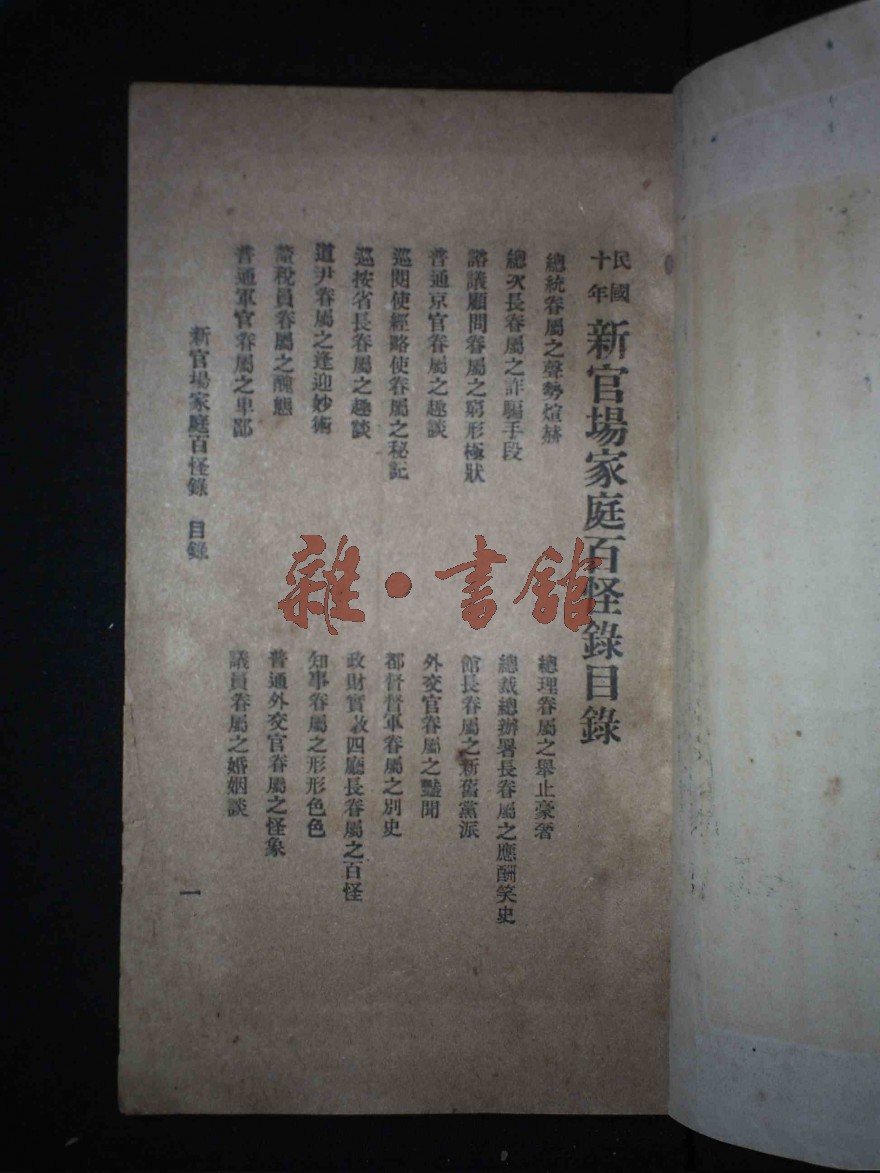 民國十年 新官場家庭百怪錄目錄
總統眷屬之聲勢煊赫
總理眷屬之舉止豪奢
總次長眷屬之詐騙手段
總裁總辦署長眷屬之應酬笑史
諮議顧問眷屬之窮形極狀
館長眷屬之新舊黨派
普通京官眷屬之趣談
外交官眷屬之豔聞
巡閱使經略使眷屬之秘記
都督督軍眷屬之別史
巡按省長眷屬之趣談
政財實敎四廳長眷屬之百怪
道尹眷屬之逢迎妙術
知事眷屬之形形色色
釐稅員眷屬之醜態
普通外交官眷屬之怪象
普通軍官眷屬之卑鄙
議員眷屬之婚姻談
新官場家庭百怪錄 目錄
一
雜·書館